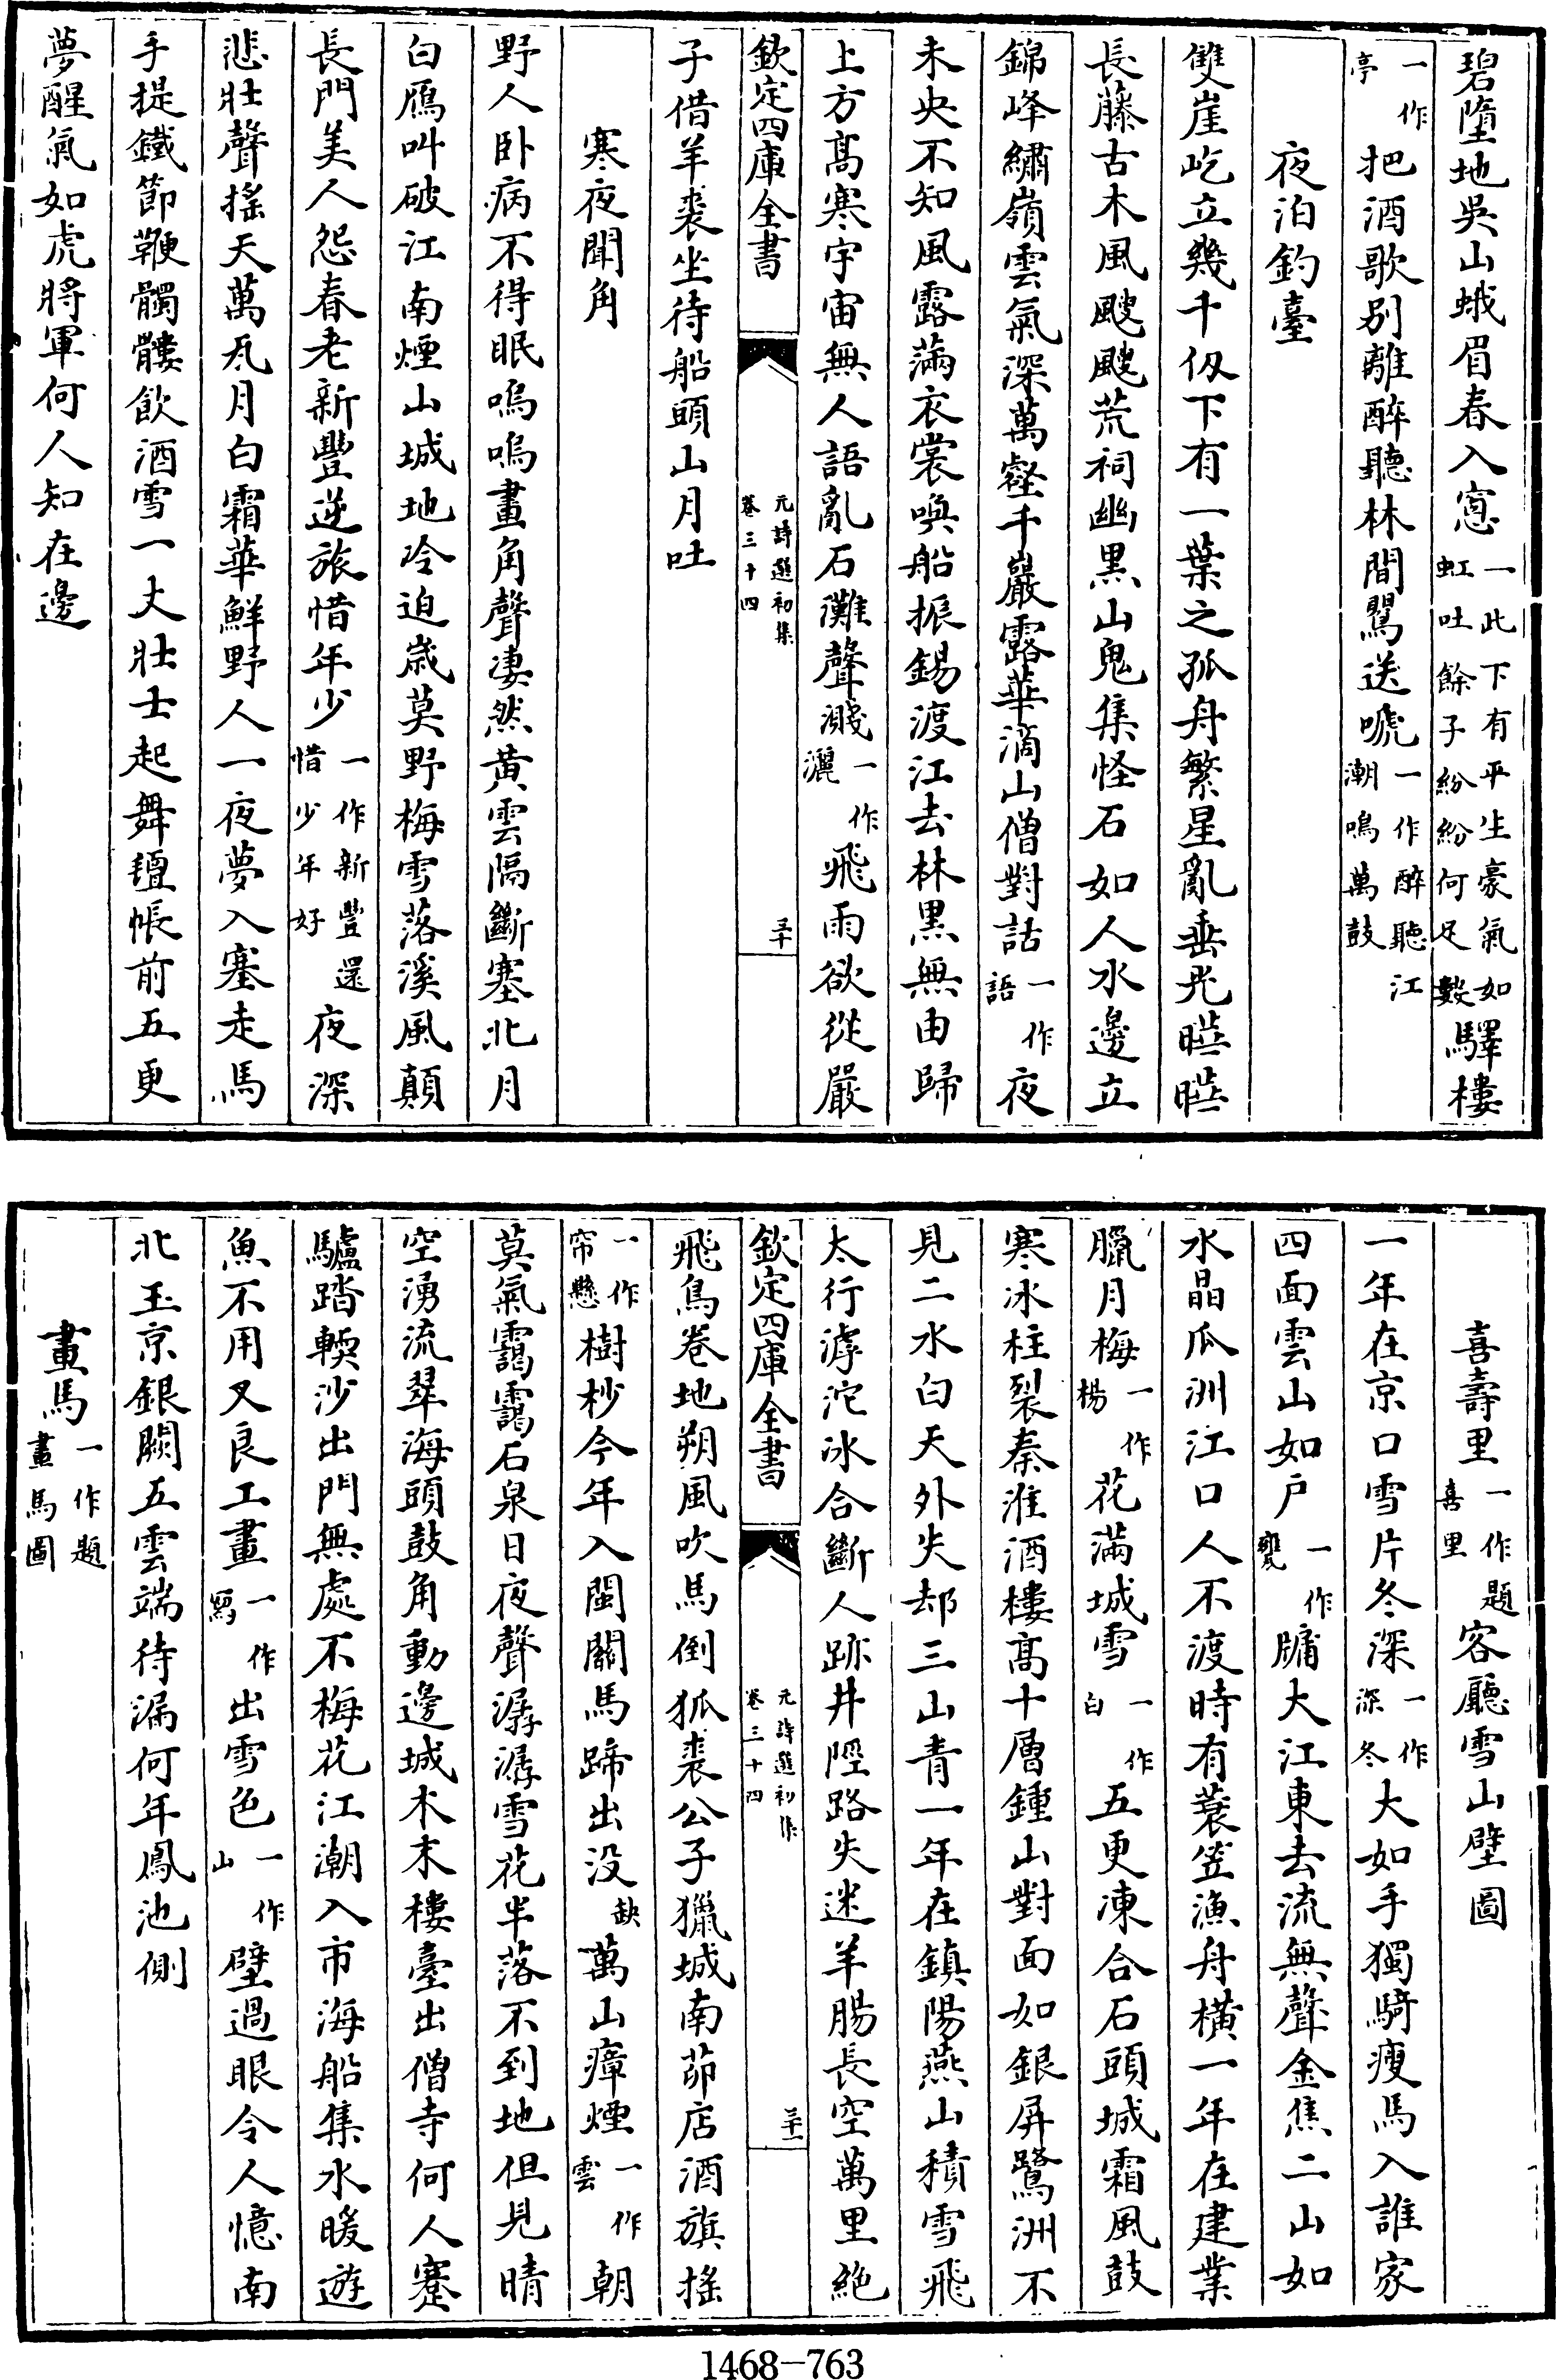 碧墮地吳山蛾眉春入窻一此下有平生豪氣如虹吐餘子紛紛何足數驛樓
一作亭把酒歌別離醉聽林間鶡送唬一作醉聽江潮鳴萬鼓
夜泊釣臺
雙崖屹立幾千仭下有一葉之孤舟繁星亂垂光㬢㬢
長藤古木風颼颼荒祠幽黑山鬼集怪石如人水邊立
錦峰繡嶺雲氣深萬壑千巖露華滴山僧對話一作語夜
未央不知風露滿衣裳喚船振錫渡江去林黑無由歸
上方髙寒宇宙無人語亂石灘聲濺一作灑飛雨欲從嚴
欽定四庫全書
元詩選初集
卷三十四
三十
子借羊裘坐待船頭山月吐
寒夜聞角
野人卧病不得眠嗚嗚畫角聲凄然黃雲隔斷塞北月
白鴈叫破江南煙山城地冷迫歲莫野梅雪落溪風顛
長門美人怨春老新豐逆旅惜年少一作新豐還惜少年好夜深
悲壯聲搖天萬瓦月白霜華鮮野人一夜夢入塞走馬
手提鐵節鞭髑髏飲酒雪一丈壯士起舞氊帳前五更
夢醒氣如虎將軍何人知在邊
喜壽里一作題喜里客廳雪山壁圖
一年在京口雪片冬深一作深冬大如手獨騎瘦馬入誰家
四面雲山如户一作甕牖大江東去流無聲金焦二山如
水晶瓜洲江口人不渡時有蓑笠漁舟橫一年在建業
臘月梅一作楊花滿城雪一作白五更凍合石頭城霜風鼓
寒冰柱裂秦淮酒樓髙十層鍾山對面如銀屏鷺洲不
見二水白天外失却三山青一年在鎮陽燕山積雪飛
太行滹沱冰合斷人跡井陘路失迷羊腸長空萬里絶
欽定四庫全書
元詩選初集
卷三十四
三十一
飛鳥卷地朔風吹馬倒狐裘公子獵城南茆店酒旗搖
一作帘懸樹杪今年入閩關馬蹄出没缺萬山瘴煙一作雲朝
莫氣靄靄石泉日夜聲潺潺雪花半落不到地但見晴
空湧流翠海頭鼓角動邊城木末樓臺出僧寺何人蹇
驢踏輭沙出門無處不梅花江潮入市海船集水暖遊
魚不用叉良工畫一作寫出雪色一作山壁過眼令人憶南
北玉京銀闕五雲端待漏何年鳳池側
畫馬一作題畫馬圖
1468-763